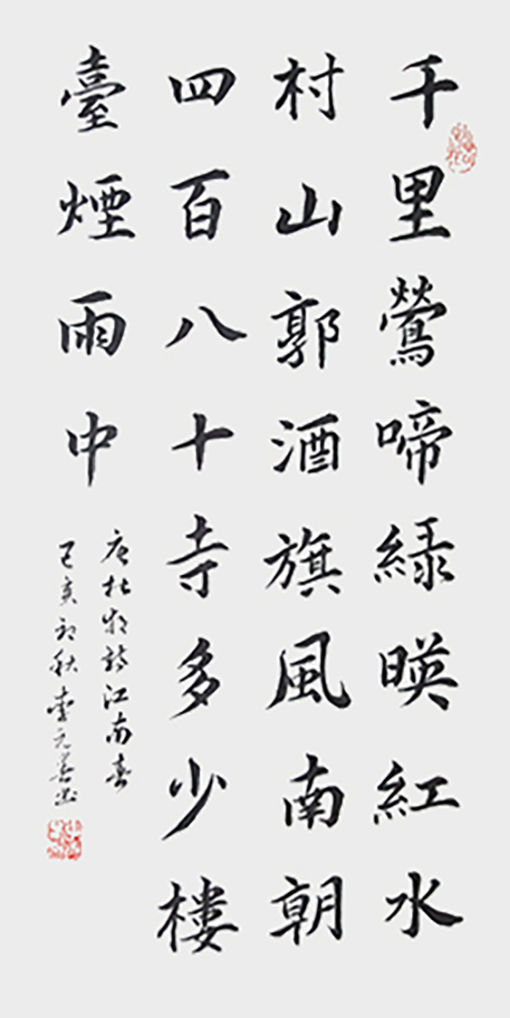 千里鶯啼緑暎紅水
村山郭酒旗風南朝
四百八十寺多少樓
臺煙雨中
唐杜牧詩江南春
己亥初秋 元善書